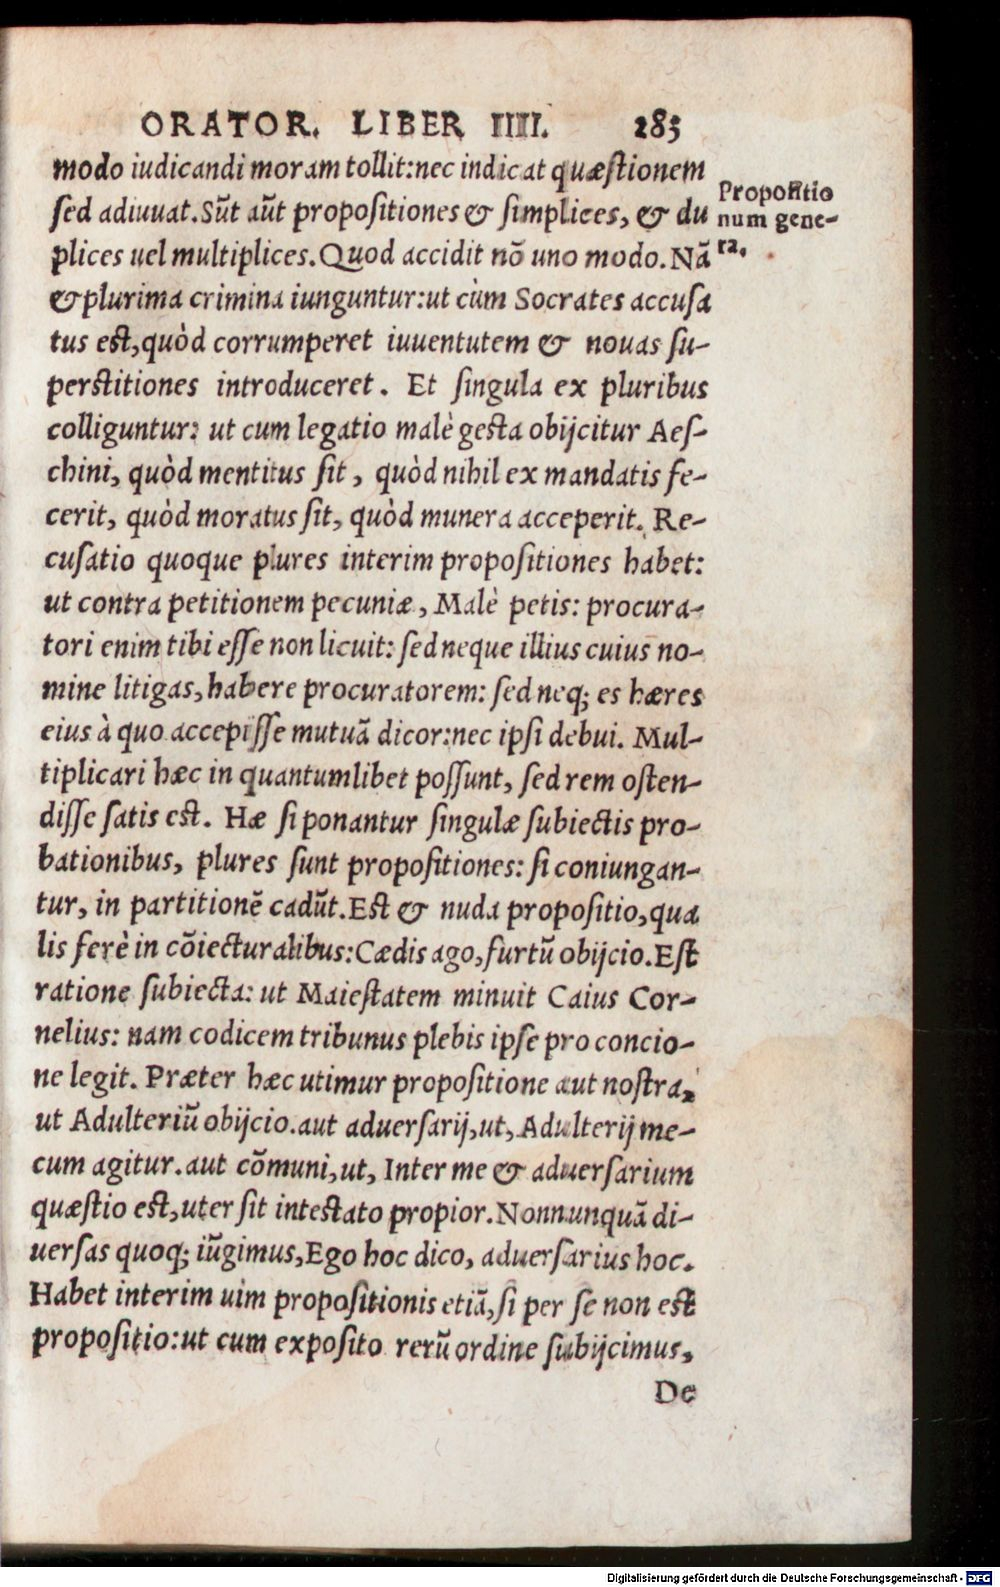 ORATOR. LIBER IIII. 285
modo iudicandi moram tollit: nec indicat quæstionem
sed adiuuat. Sũt aũt propositiones & simplices, & du
plices uel multiplices. Quod accidit nõ uno modo. Nã
& plurima crimina iunguntur: ut cùm Socrates accusa
tus est, quòd corrumperet iuuentutem & nouas su-
perstitiones introduceret. Et singula ex pluribus
colliguntur: ut cum legatio malè gesta obijcitur Aes-
chini, quòd mentitus sit, quòd nihil ex mandatis fe-
cerit, quòd moratus sit, quòd munera acceperit. Re-
cusatio quoque plures interim propositiones habet:
ut contra petitionem pecuniæ, Malè petis: procura-
tori enim tibi esse non licuit: sed neque illius cuius no-
mine litigas, habere procuratorem: sed neq; es hæres
eius à quo accepisse mutuã dicor: nec ipsi debui. Mul-
tiplicari hæc in quantumlibet possunt, sed rem osten-
disse satis est. Hæ si ponantur singulæ subiectis pro-
bationibus, plures sunt propositiones: si coniungan-
tur, in partitionẽ cadũt. Est & nuda propositio, qua
lis ferè in cõiecturalibus: Cædis ago, furtũ obijcio. Est
ratione subiecta: ut Maiestatem minuit Caius Cor-
nelius: nam codicem tribunus plebis ipse pro concio-
ne legit. Præter hæc utimur propositione aut nostra,
ut Adulteriũ obijcio. aut aduersarij, ut, Adulterij me-
cum agitur. aut cõmuni, ut, Inter me & aduersarium
quæstio est, uter sit intestato propior. Nonnunquã di-
uersas quoq; iũgimus, Ego hoc dico, aduersarius hoc.
Habet interim uim propositionis etiã, si per se non est
propositio: ut cum exposito rerũ ordine subijcimus,
De
Propositio
num gene-
ra.
Digitalisierung gefördert durch die Deutsche Forschungsgemeinschaft - DFG